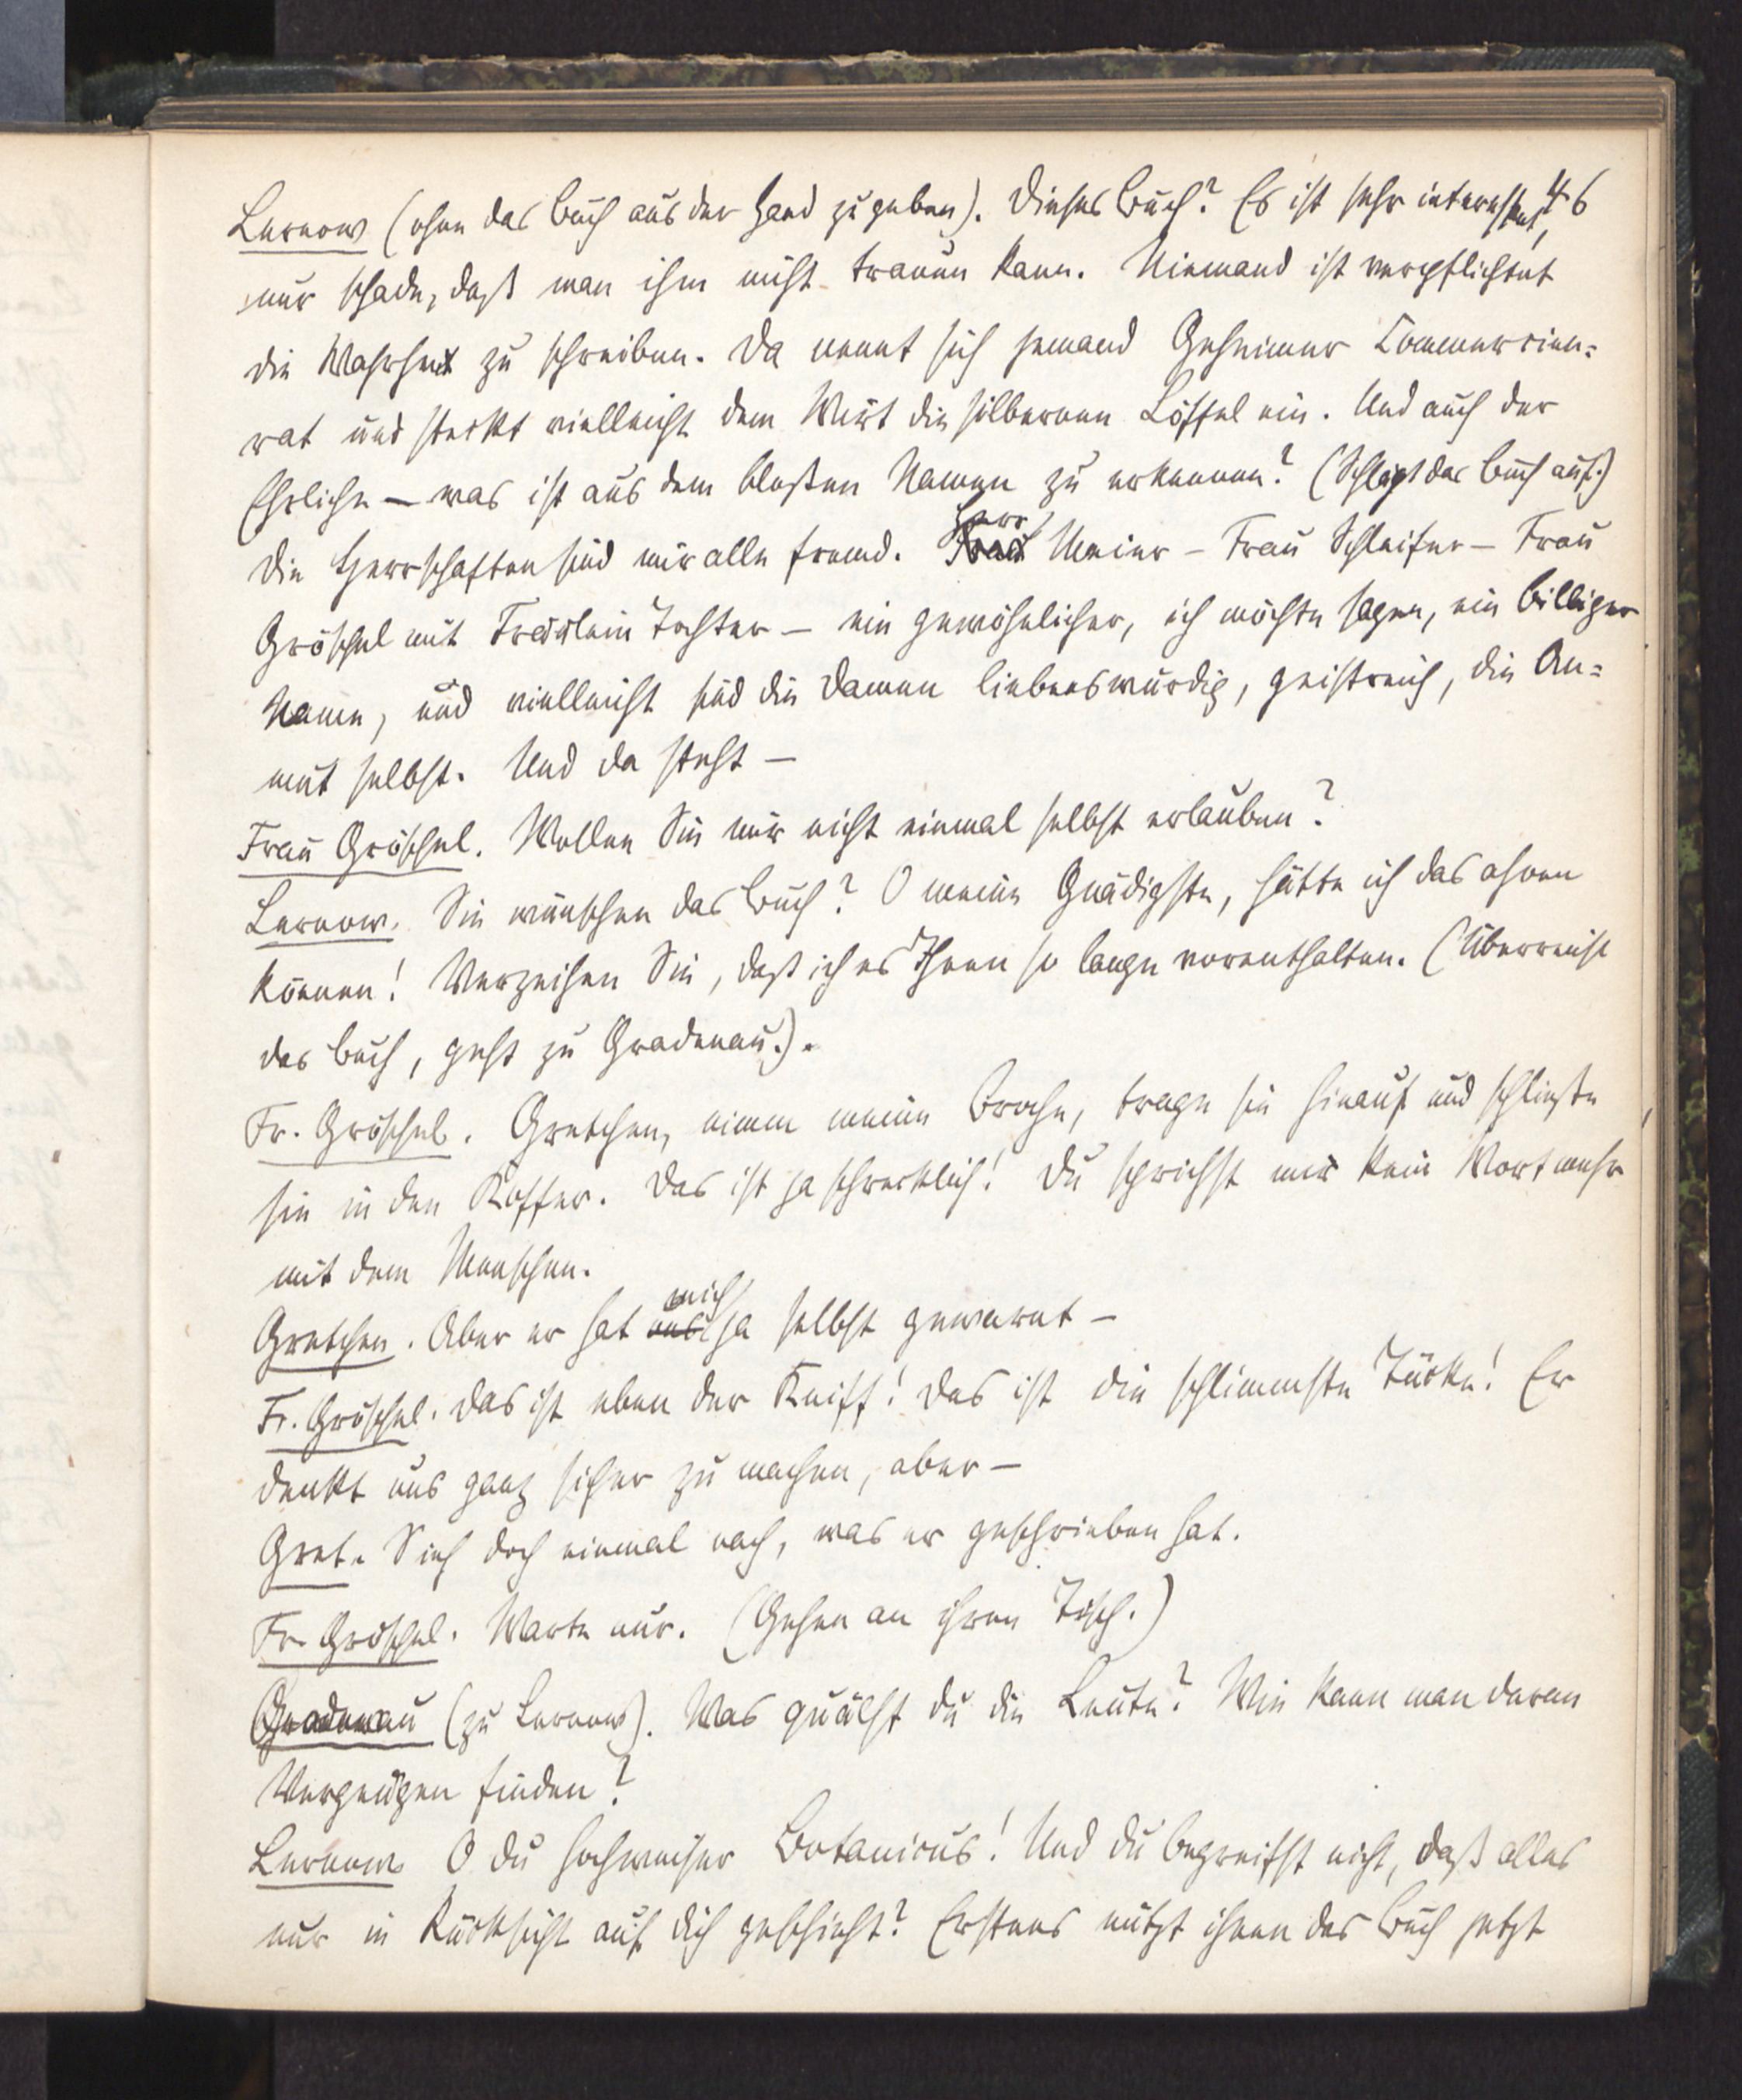 46
Lernow (ohne das Buch aus der Hand zu geben). Dieses Buch? Es ist sehr interessant,
nur schade, daß man ihm nicht trauen kann. Niemand ist verpflichtet
die Wahrheit zu schreiben. Da nennt sich jemand Geheimer Commerzien-
rat und steckt vielleicht dem Wirt die silbernen Löffel ein. Und auch der
Ehrliche – was ist aus dem bloßen Namen zu erkennen? (Schlägt das Buch auf.)
Die Herrschaften sind mir alle fremd. Frau Herr Meier – Frau Schleifer – Frau
Gröschel mit Fräulein Tochter – ein gewöhnlicher, ich möchte sagen, ein billiger
Name, und vielleicht sind die Damen liebenswürdig, geistreich, die An-
mut selbst. Und da steht –
Frau Gröschel. Wollen Sie mir nicht einmal selbst erlauben?
Lernow. Sie wünschen das Buch? O meine Gnädigste, hätte ich das ahnen
können! Verzeihen Sie, daß ich es Ihnen so lange vorenthalten. (Überreicht
das Buch, geht zu Gradenau.).
Fr. Gröschel. Gretchen, nimm meine Broche, trage sie hinauf und schließe
sie in den Koffer. Das ist ja schrecklich! Du sprichst mir kein Wort mehr
mit dem Menschen.
Gretchen. Aber er hat uns mich ja selbst gewarnt –
Fr. Gröschel. Das ist eben der Kniff! Das ist die schlimmste Tücke! Er
denkt uns ganz sicher zu machen, aber –
Gret. Sieh doch einmal nach, was er geschrieben hat.
Fr. Gröschel. Warte nur. (Gehen an ihren Tisch.)
Gradenau (zu Lernow). Was quälst du die Leute? Wie kann man daran
Vergnügen finden?
Lernow. O du hochweiser Botanicus! Und du begreifst nicht, daß alles
nur in Rücksicht auf dich geschieht? Erstens nützt ihnen das Buch jetzt